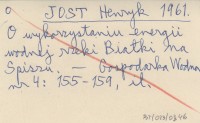 o JOST Henryk 1961.
O wykorzystaniu energii
wodnej rzeki Białki na
Spiszu. — Gospodarka Wodna
nr 4: 155-159, il.